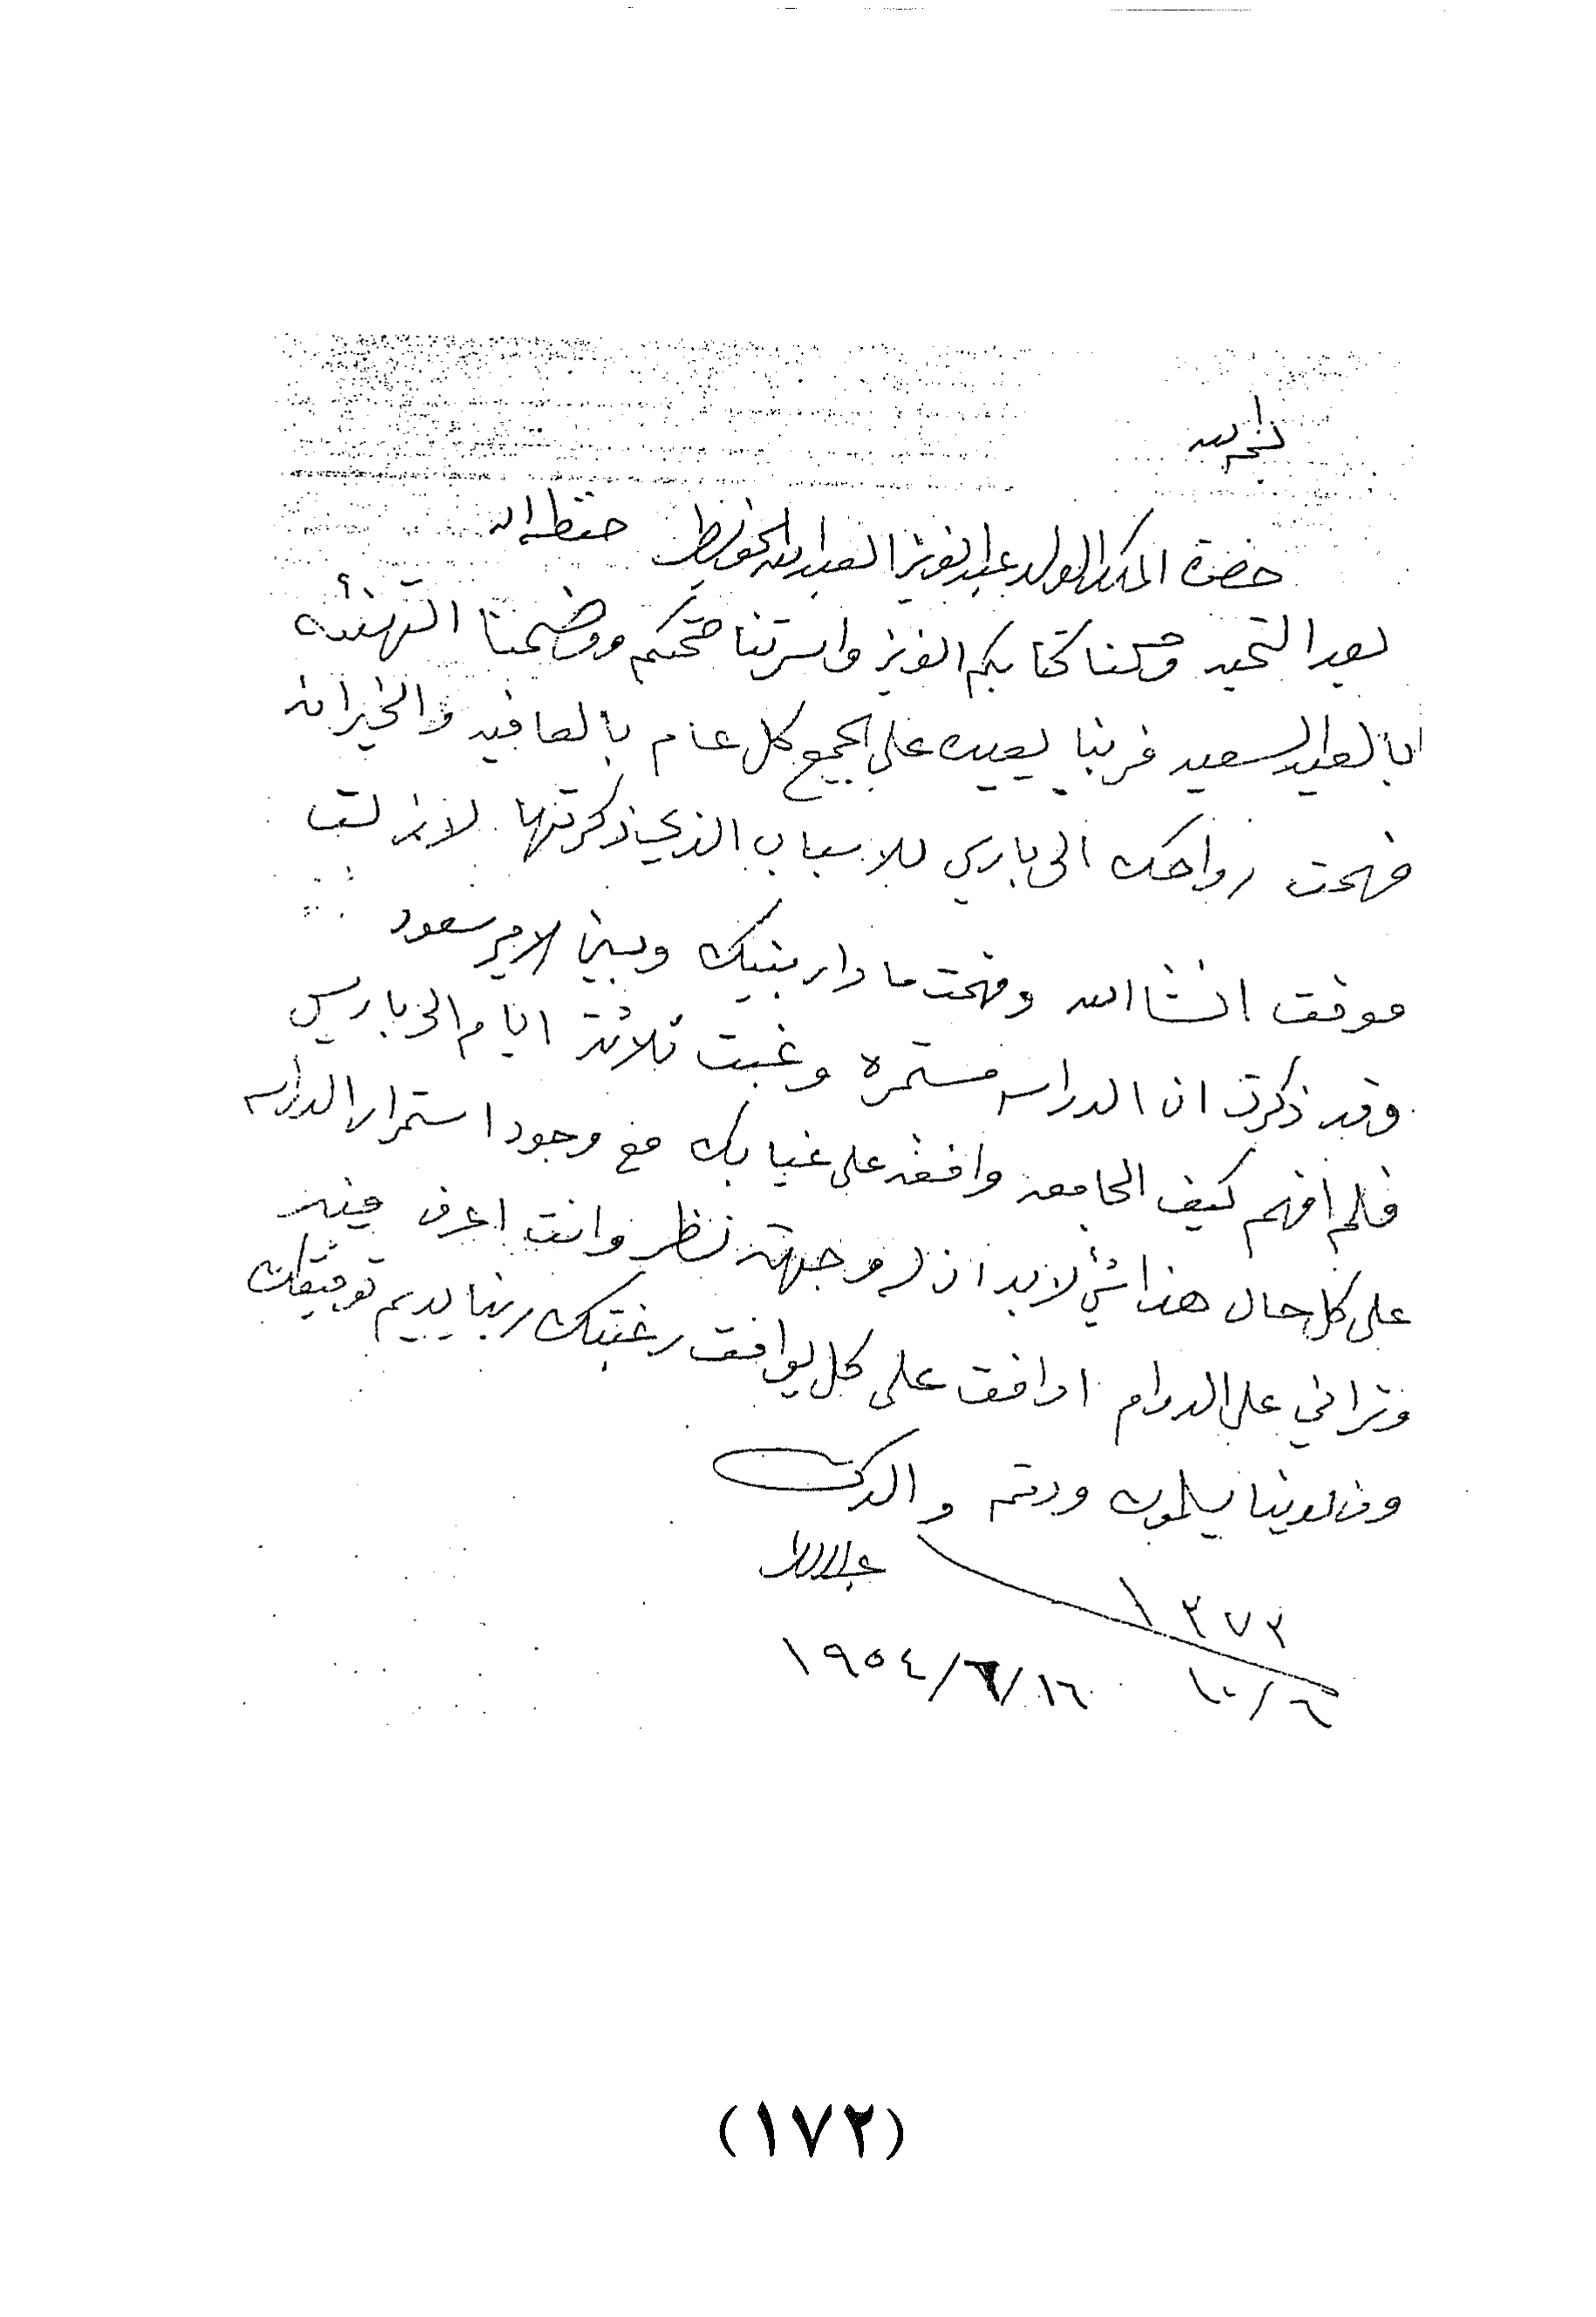 حضرة المكرم الولد عبدالعزيز العبدالله الحويطي حفظه الله
بعد التحيه وصلنا كتابكم العزيز واسرتنا صحتكم وفهمنا التهنئه
بالعيد السعيد فربنا يعيده على الجميع كل عام بالعافيه والخيرات
فهمت رواحك الى باريس للاسباب الذي ذكرتها لازلت
موفق انشاالله وفهمت ما دار بينك وبين الامير سعود
وقد ذكرت ان الدراسه مستمره وغبت ثلاثة ايام الى باريس
فلم افهم كيف الجامعه وافقه على غيابك مع وجود استمرار الدراسه
على كل حال هذا شي لابد ان له وجهة نظر وانت اعرف فيه
وتراني على الدوام اوافق على كل يوافق رغبتك ربنا يديم توفيقك
ومن لدينا يسلمون ودمتم والدك
عبدالله
١٣٧٣
١٠/٦ ١٩٥٤/٦/١٦
(١٧٢)